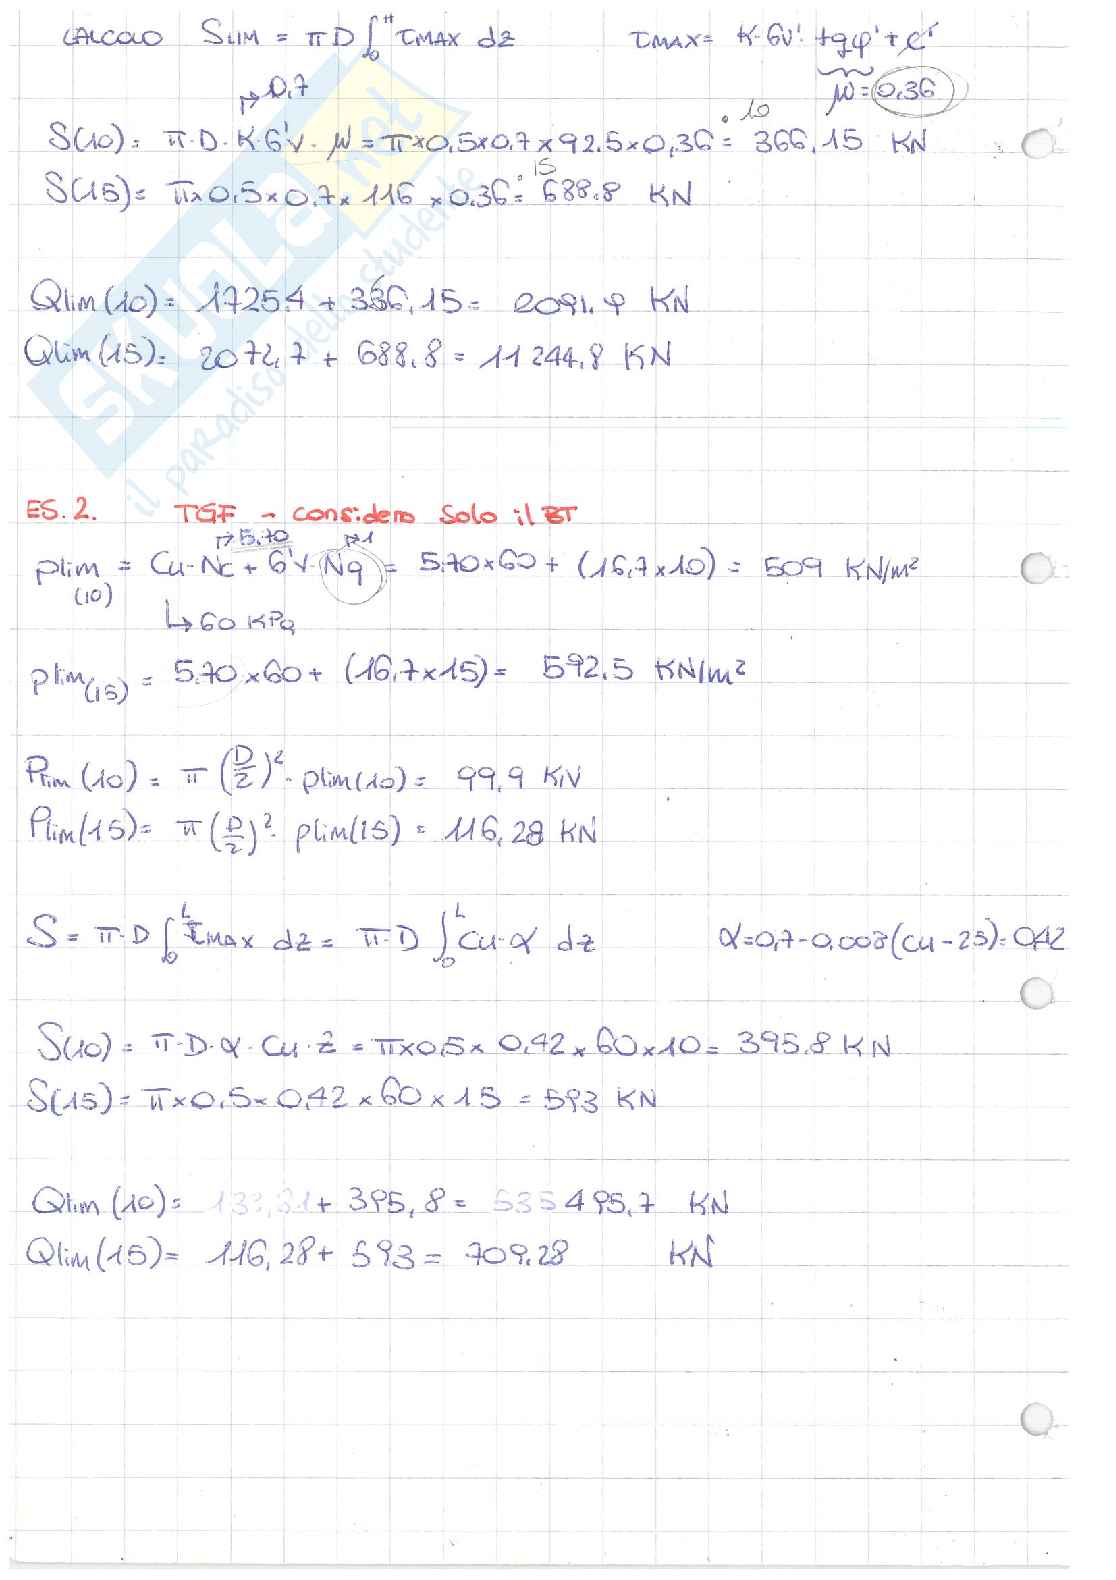 CALCOLO SLIM = π D ∫₀ᴴ τMAX dz τMAX = K·σv' · tgφ' + c'
↱ 0,7 μ = 0,36
S(10) = π·D·K·σ'v·μ = π×0,5×0,7×92.5×0,36 · 10 = 366,15 KN
S(15) = π×0,5×0,7×116×0,36 · 15 = 688.8 KN
Qlim(10) = 1725.4 + 366,15 = 2091.4 KN
Qlim(15) = 2072,7 + 688,8 = 11244,8 KN
ES. 2. TGF - considero solo il BT
↱ 5.70 ↱ 1
plim (10) = Cu·Nc + σ'v·Nq = 5.70×60 + (16,7×10) = 509 KN/m²
↳ 60 KPa
plim(15) = 5.70×60 + (16,7×15) = 592.5 KN/m²
Plim(10) = π (D/2)² · plim(10) = 99,9 KN
Plim(15) = π (D/2)² · plim(15) = 116,28 KN
S = π·D ∫₀ᴸ τMAX dz = π·D ∫₀ᴸ Cu·α dz α = 0,7 - 0,008(Cu - 25) = 0,42
S(10) = π·D·α·Cu·z = π×0,5×0,42×60×10 = 395,8 KN
S(15) = π×0,5×0,42×60×15 = 593 KN
Qlim(10) = + 395,8 = 495,7 KN
Qlim(15) = 116,28 + 593 = 709.28 KN
SKUOLA.net
il paradiso dello studente